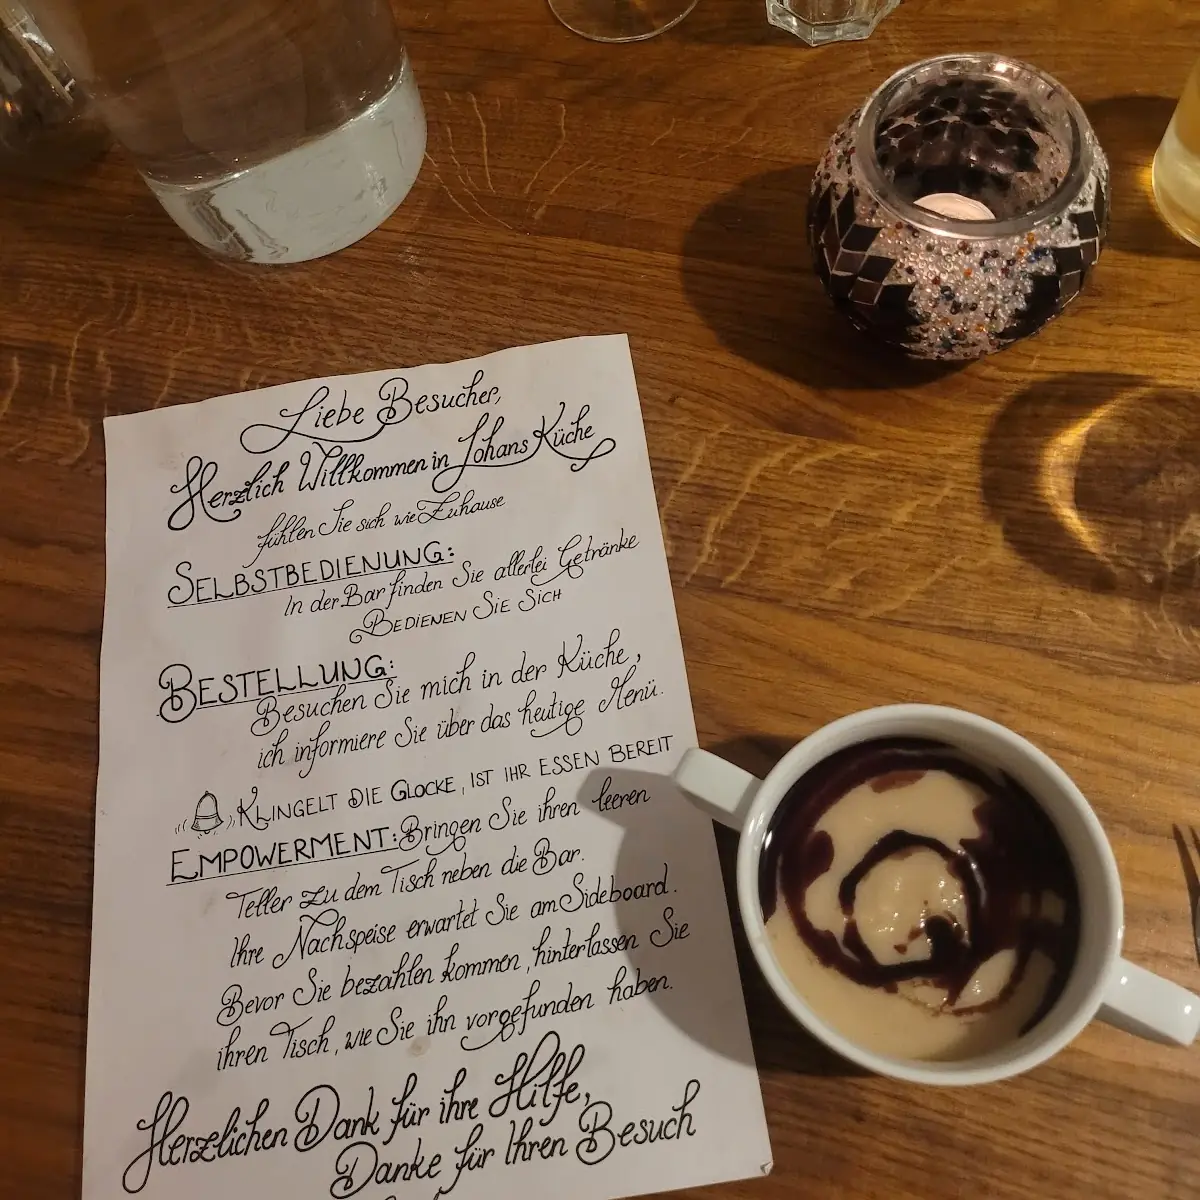 Liebe Besucher,
Herzlich Willkommen in Johans Küche
fühlen Sie sich wie Zuhause
SELBSTBEDIENUNG:
In der Bar finden Sie allerlei Getränke
BEDIENEN SIE SICH
BESTELLUNG:
Besuchen Sie mich in der Küche,
ich informiere Sie über das heutige Menü.
KLINGELT DIE GLOCKE, IST IHR ESSEN BEREIT
EMPOWERMENT: Bringen Sie ihren leeren
Teller zu dem Tisch neben die Bar.
Ihre Nachspeise erwartet Sie am Sideboard.
Bevor Sie bezahlen kommen, hinterlassen Sie
ihren Tisch, wie Sie ihn vorgefunden haben.
Herzlichen Dank für ihre Hilfe,
Danke für Ihren Besuch